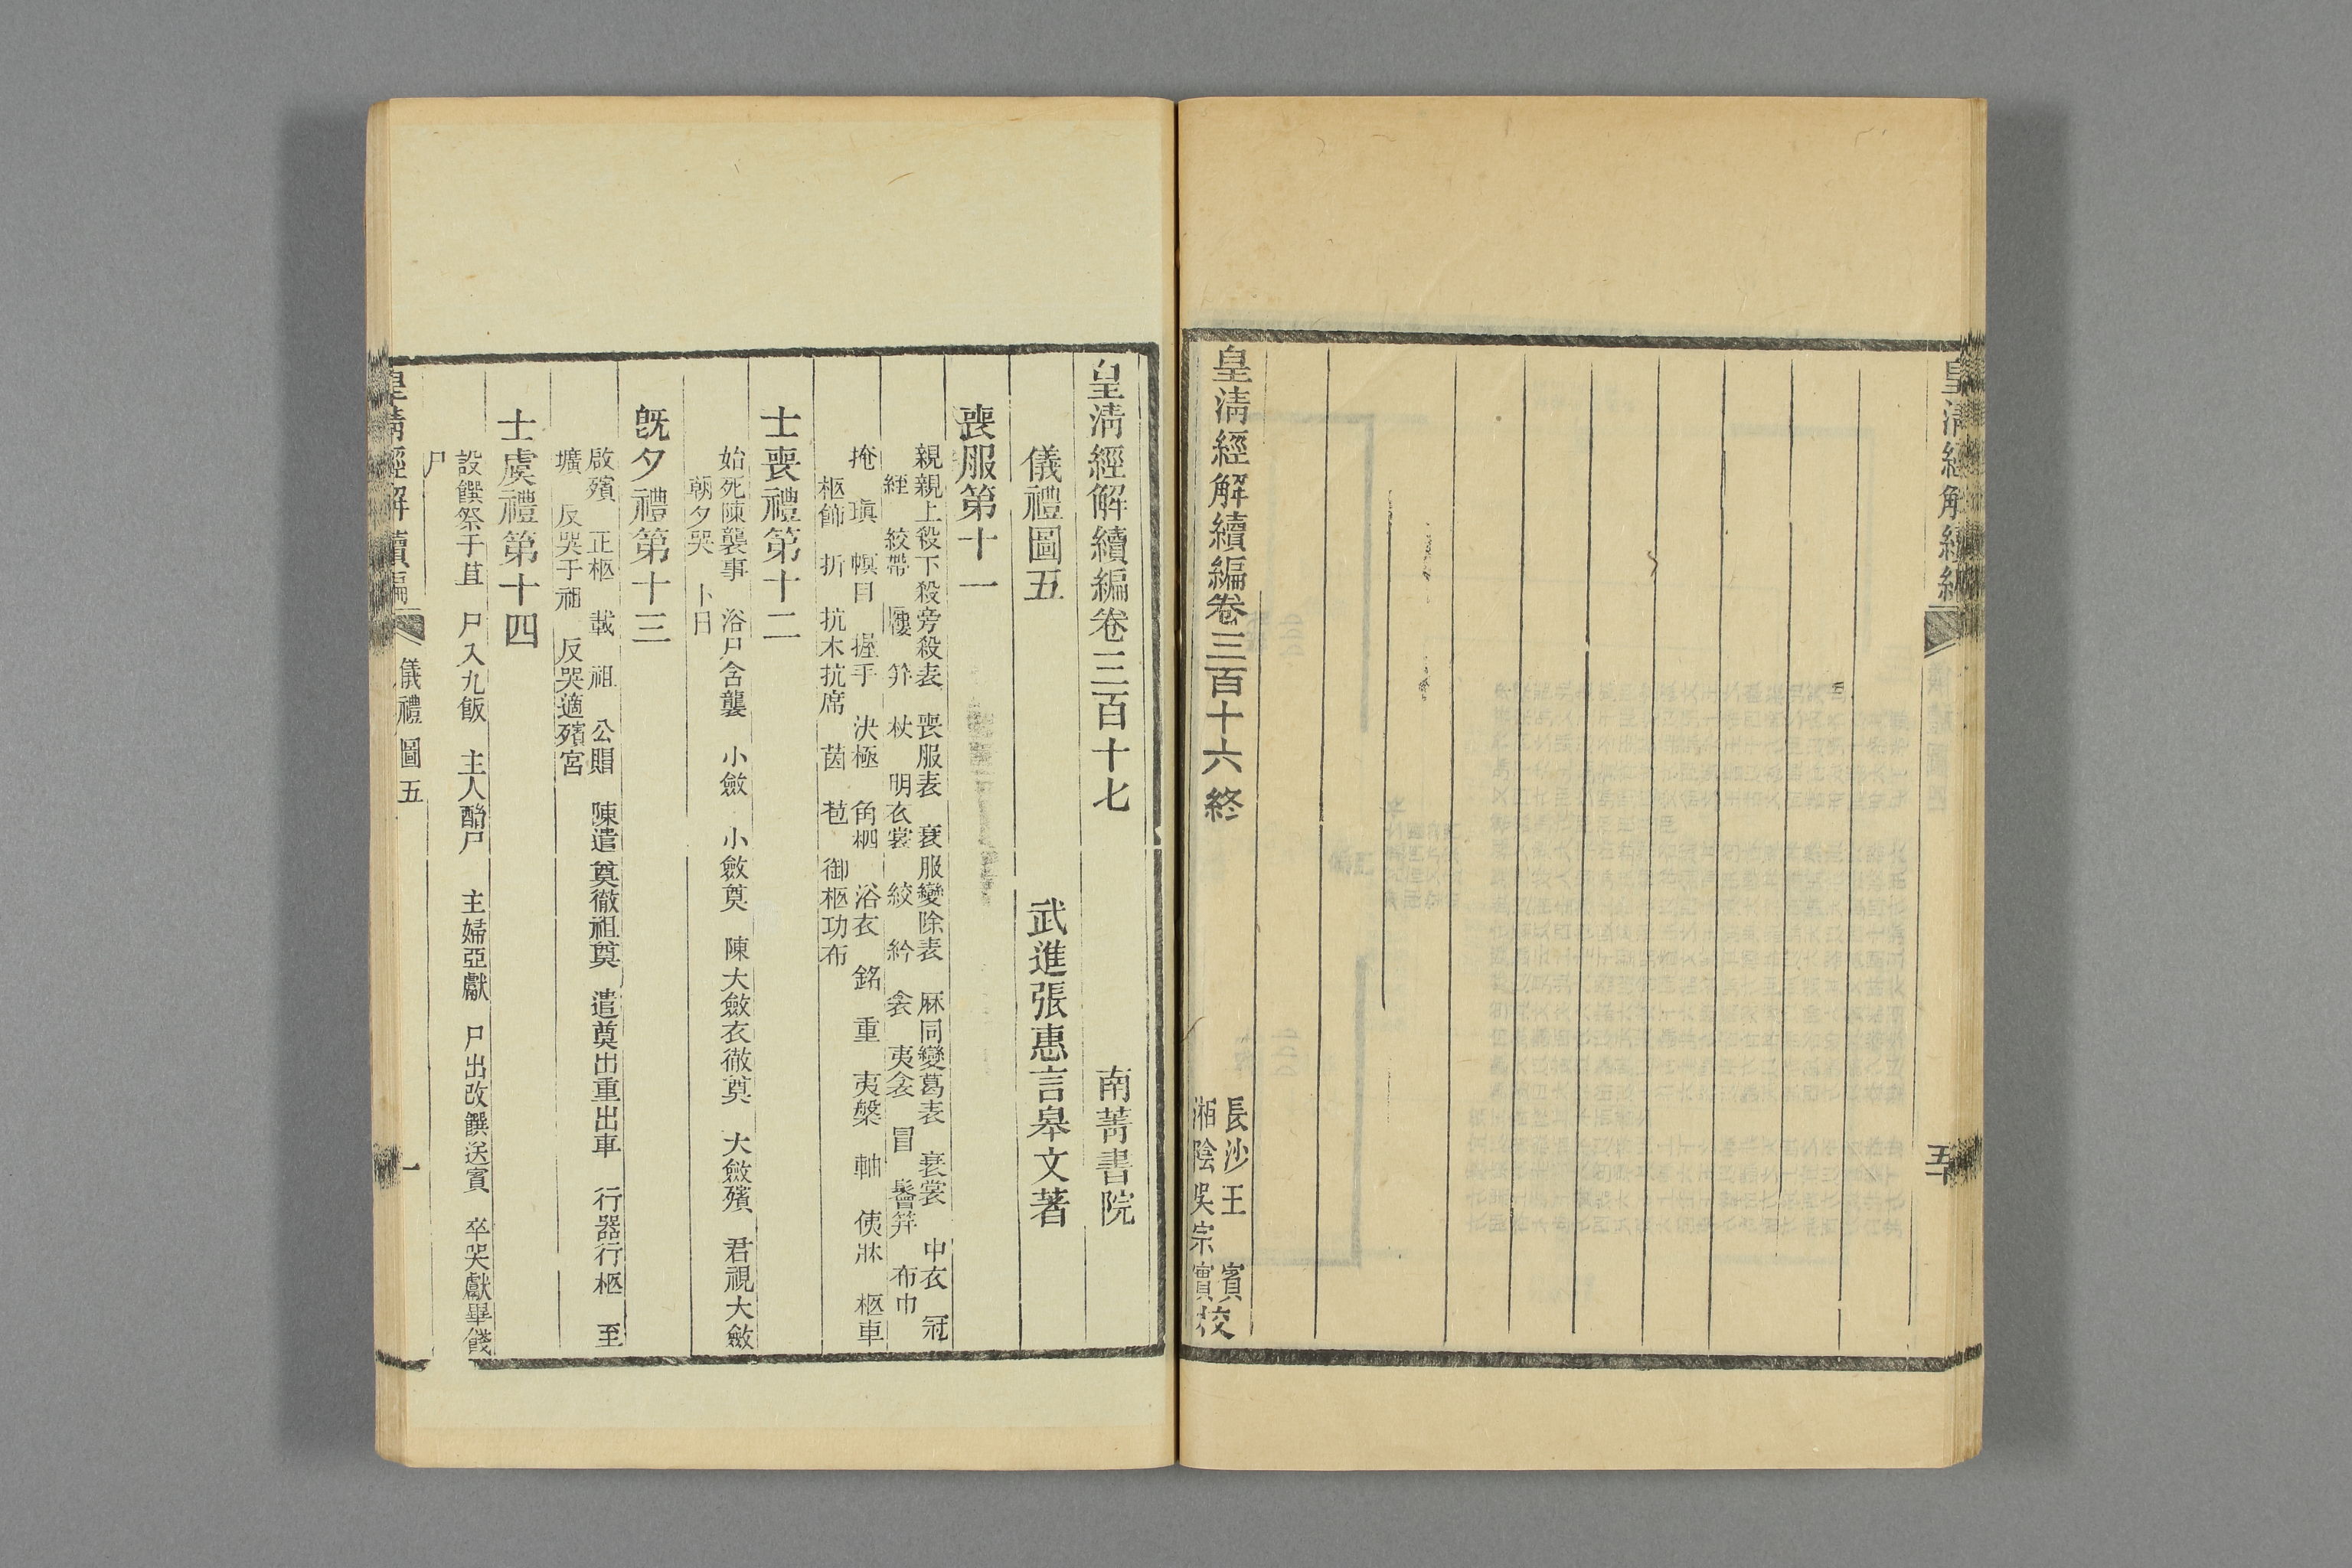 皇清經解續編
五十
皇清經解續編卷三百十六終
長沙王 賓
湘陰吳宗實校
皇清經解續編卷三百十七 南菁書院
儀禮圖五 武進張惠言皋文著
喪服第十一
親親上殺下殺旁殺表 喪服表 衰服變除表 麻同變葛表 衰裳 中衣 冠
絰 絞帶 屨 笄 杖 明衣裳 絞 紟 衾 夷衾 冒 鬠笄 布巾
掩 瑱 幎目 握手 決極 角柶 浴衣 銘 重 夷槃 軸 侇牀 柩車
柩飾 折 抗木抗席 茵 苞 御柩功布
士喪禮第十二
始死陳襲事 浴尸含襲 小斂 小斂奠 陳大斂衣徹奠 大斂殯 君視大斂
朝夕哭 卜日
旣夕禮第十三
啟殯 正柩 載 祖 公賵 陳遣奠徹祖奠 遣奠出重出車 行器行柩 至
壙 反哭于祖 反哭適殯宮
士虞禮第十四
設饌祭于苴 尸入九飯 主人酳尸 主婦亞獻 尸出改饌送賓 卒哭獻畢餞
尸
皇清經解續編 儀禮圖五 一